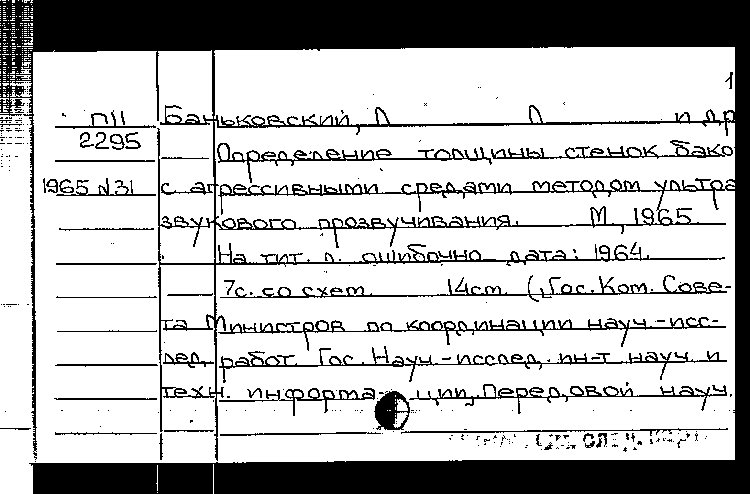 1
П11 Баньковский, Л Л и др
2295
Определение толщины стенок бако
1965 №31 с агрессивными средами методом ультра
звукового прозвучивания. М., 1965.
На тит. л. ошибочно дата: 1964.
7с. со схем. 14см. (Гос. Ком. Сове-
та Министров по координации науч.-исс-
лед. работ. Гос. Науч.-исслед. ин-т науч. и
техн. информа- ции. Передовой науч.
см. след. карт